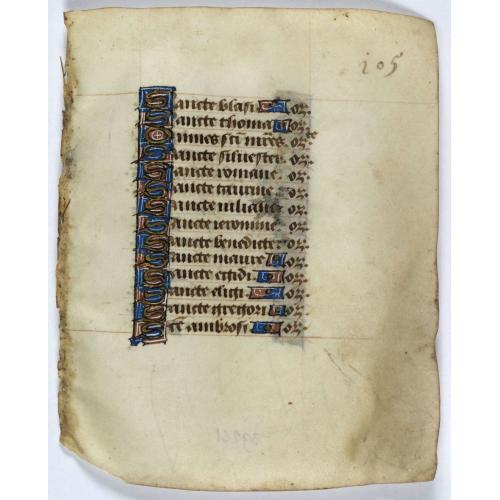 205
Sancte blasi or
Sancte thoma or
Omnes sci mres orte
Sancte siluester or
Sancte romane or
Sancte taurine or
Sancte iuliane or
Sancte ieronime or
Sancte benedicte or
Sancte maure or
Sancte egidi or
Sancte eligi or
Sancte gregori or
Sce ambrosi or